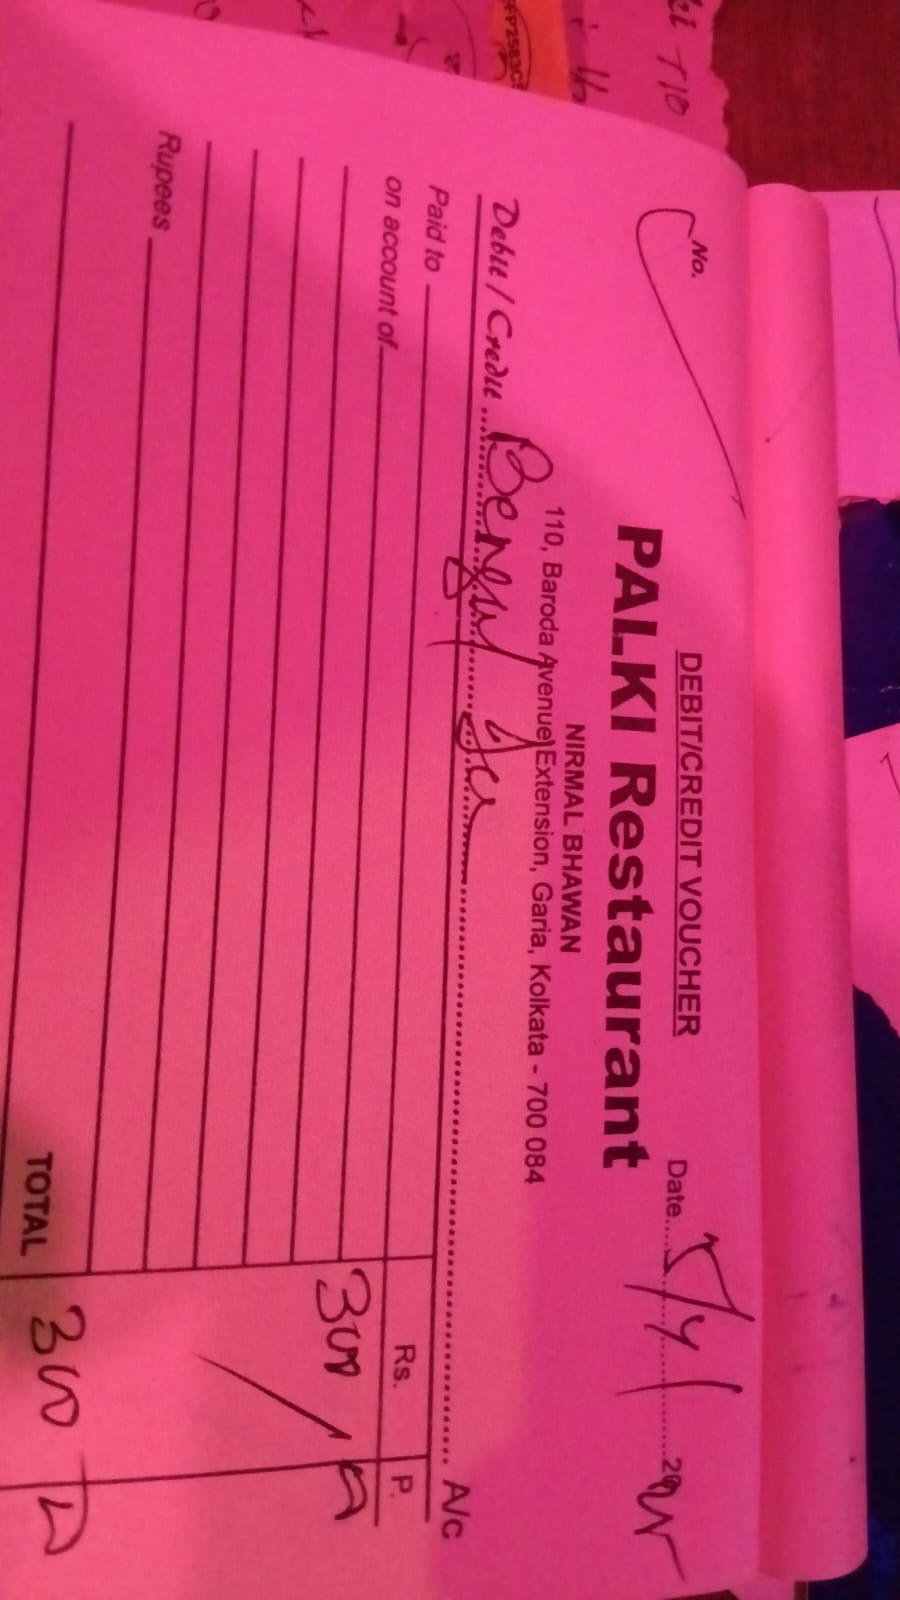 DEBIT/CREDIT VOUCHER
No.
Date
PALKI Restaurant
NIRMAL BHAWAN
110, Baroda Avenue Extension, Garia, Kolkata - 700 084
Debit / Credit ........ A/c
Paid to
on account of
Rs. P.
300
Rupees
TOTAL 300